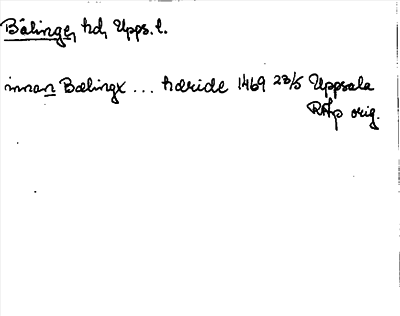 Bälinge, hd, Upps. l.
innan Bælingx ... hæride 1469 23/5 Uppsala
RAp orig.